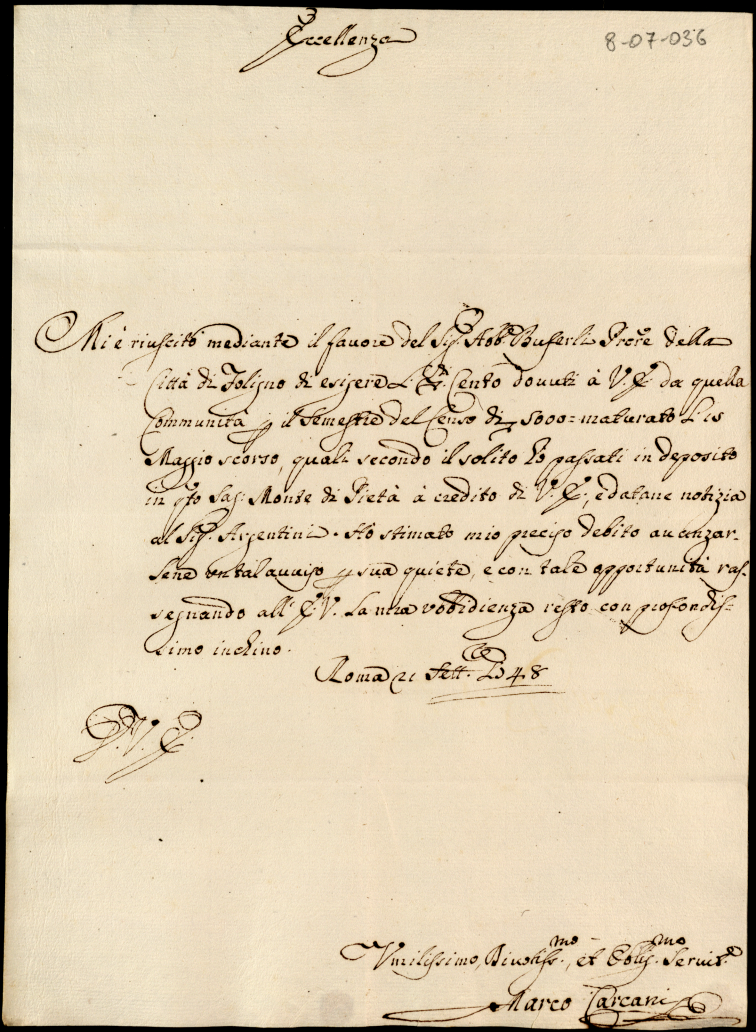 Eccellenza
8-07-036
Mi è riuscito mediante il favore del Sig. Ab. Buferli Prore della
Città di Foligno di esigere Cento dovuti à V. E. da quella
Communità p il Semestre del Censo di 5000= maturato li 15
Maggio scorso, quali secondo il solito hò passati in deposito
in qto Sag. Monte di Pietà à credito di V. E., e datane notizia
al Sig. Argentini. Hò stimato mio preciso debito avanzar=
Lene un tal avviso p sua quiete, e con tale opportunità ras=
segnando all' E. V. La mia vbbidienza resto con profondis=
simo inchino.
Roma 21 Sett. 1748
D. V. E.
Vmilissimo, Divotiss.mo, et Oblig.mo Servit.e
Marco Carcani